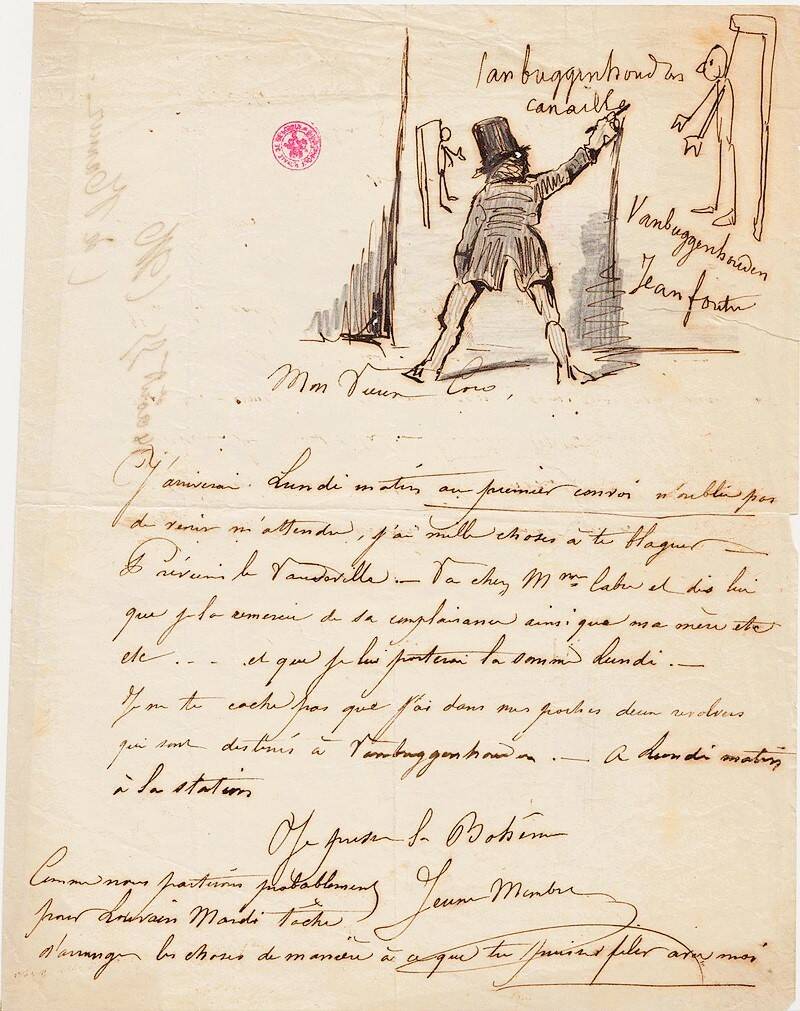 Vanbuggenhouden
canaille
Vanbuggenhouden
Jean foutre
Mon Vieux Coco,
J'arriverai Lundi matin au premier convoi n'oublie pas
de venir m'attendre, j'ai mille choses à te blaguer —
Préviens le Vaudeville. — Va chez Mme Cabu et dis lui
que je la remercie de sa complaisance ainsi que ma mère etc
etc .... et que je lui porterai la somme Lundi. —
Je ne te cache pas que j'ai dans mes poches deux revolvers
qui sont destinés à Vanbuggenhouden. — A Lundi matin
à la station
Je presse la Bohême
Jeune Membre
Comme nous partirons probablement
pour Louvain Mardi tâche
d'arranger les choses de manière à ce que tu puisses filer avec moi